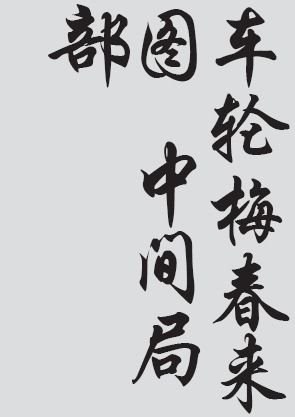 车轮梅春来
图 中间局
部